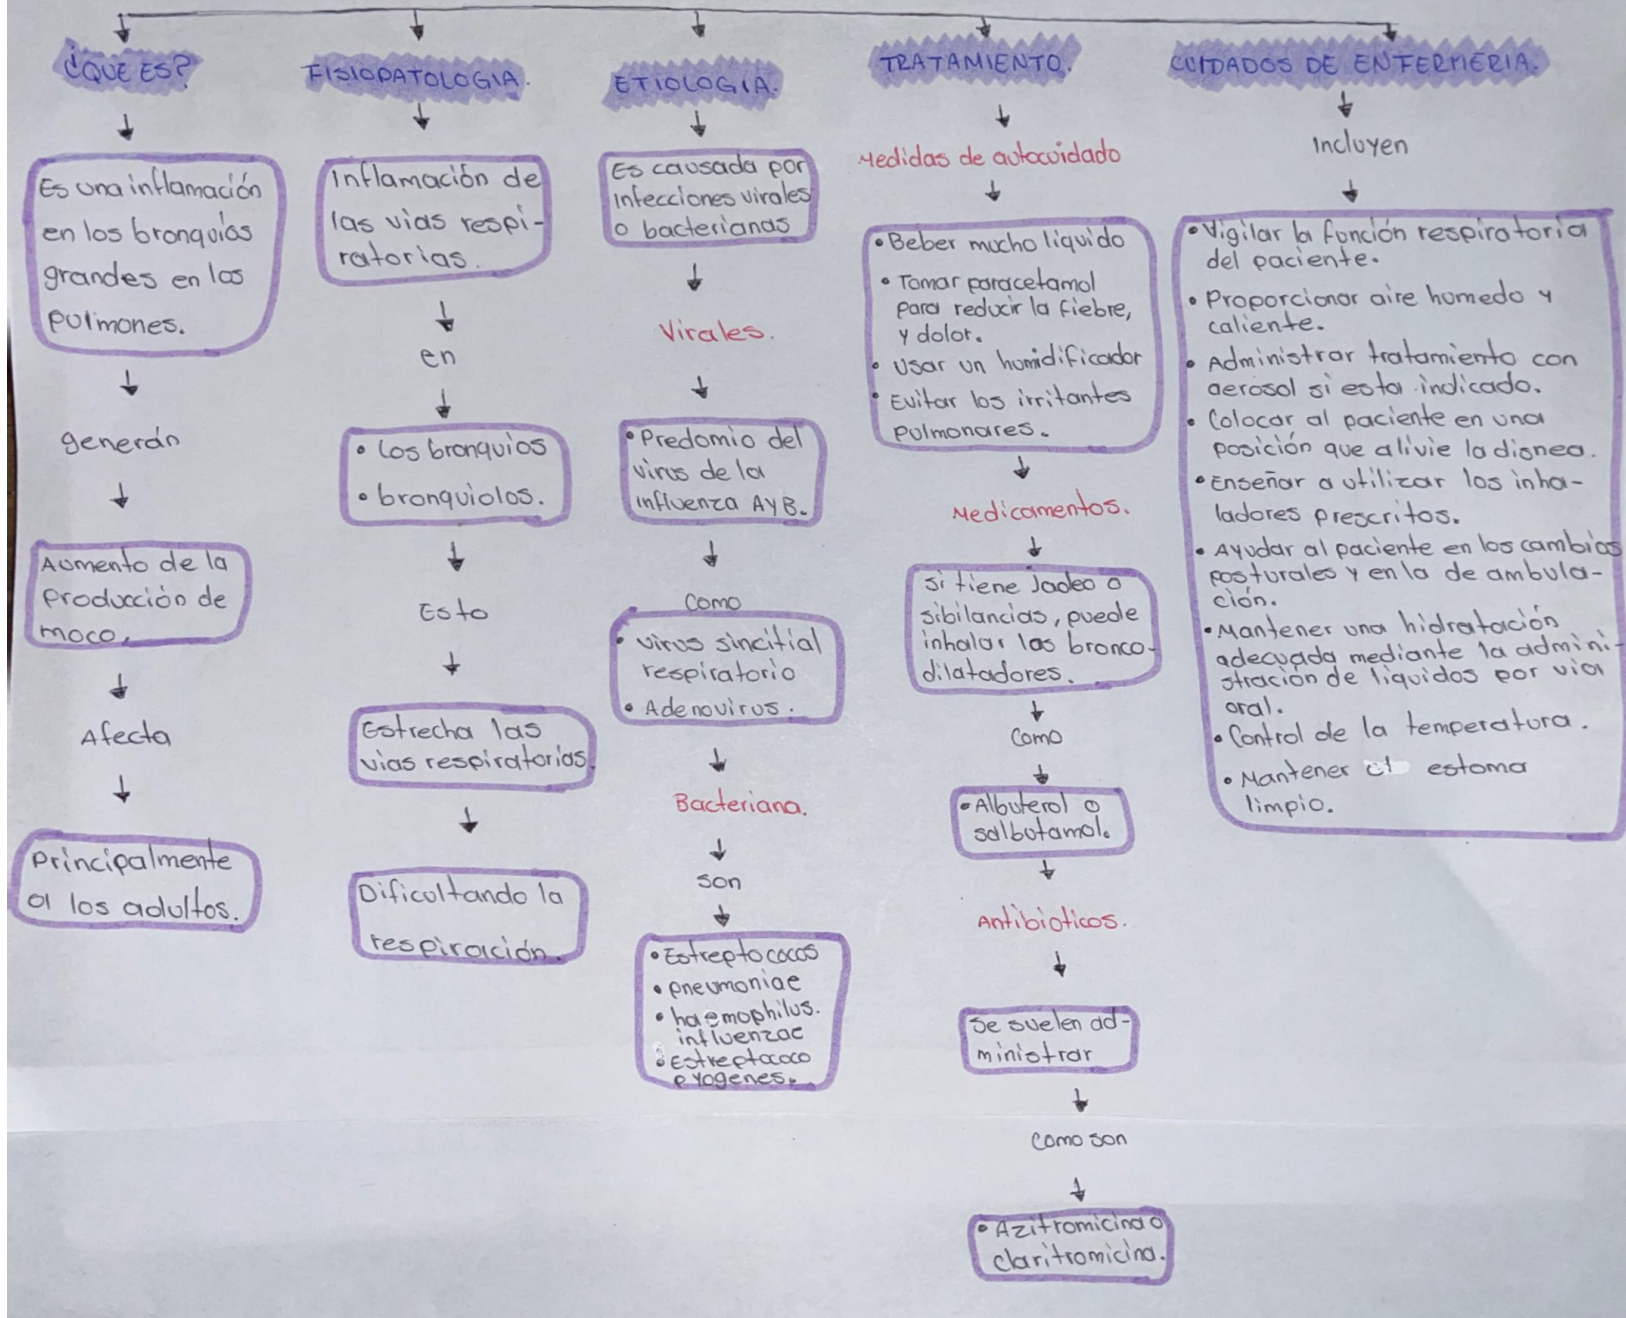 ¿QUE ES?
Es una inflamación
en los bronquios
grandes en los
pulmones.
generán
Aumento de la
producción de
moco.
Afecta
Principalmente
a los adultos.
FISIOPATOLOGIA.
Inflamación de
las vias respi-
ratorias.
en
• los bronquios
• bronquiolos.
Esto
Estrecha las
vias respiratorias.
Dificultando la
respiración.
ETIOLOGIA.
Es causada por
infecciones virales
o bacterianas
Virales.
• Predomio del
virus de la
influenza A y B.
como
• virus sincitial
respiratorio
• Adenovirus.
Bacteriana.
son
• Estreptococos
• pneumoniae
• haemophilus.
influenzae
• Estreptococo
pyogenes.
TRATAMIENTO.
Medidas de autocuidado
• Beber mucho liquido
• Tomar paracetamol
para reducir la fiebre,
y dolor.
• Usar un humidificador
• Evitar los irritantes
pulmonares.
Medicamentos.
si tiene Jadeo o
sibilancias, puede
inhalar las bronco-
dilatadores.
Como
• Albuterol o
salbutamol.
Antibioticos.
Se suelen ad-
ministrar
como son
• Azitromicina o
claritromicina.
CUIDADOS DE ENFERMERIA.
Incluyen
• Vigilar la función respiratoria
del paciente.
• Proporcionar aire humedo y
caliente.
• Administrar tratamiento con
aerosol si esta indicado.
• Colocar al paciente en una
posición que alivie la disnea.
• Enseñar a utilizar los inha-
ladores prescritos.
• Ayudar al paciente en los cambios
posturales y en la de ambula-
ción.
• Mantener una hidratación
adecuada mediante la admini-
stración de liquidos por via
oral.
• Control de la temperatura.
• Mantener el estoma
limpio.